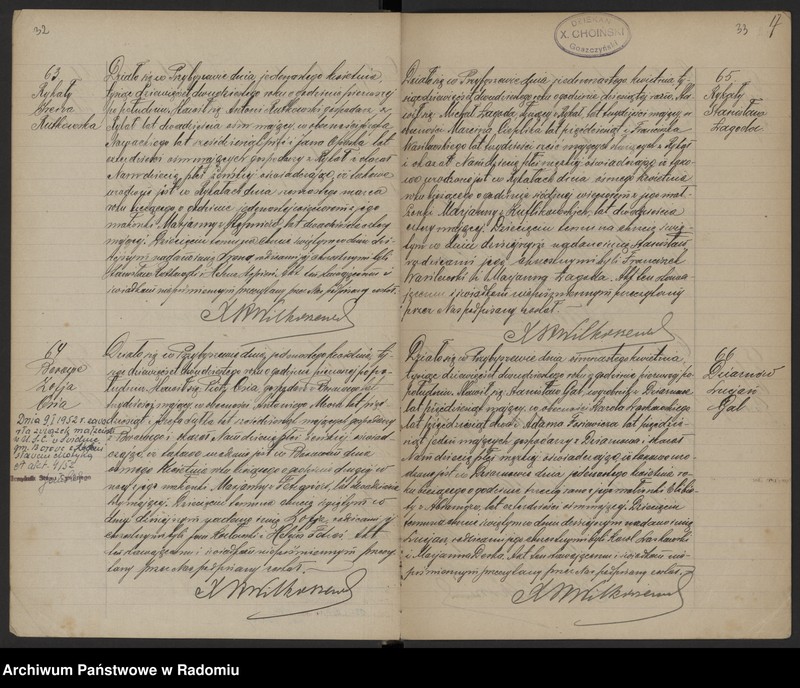 32
63
Rykały
Irena
Rutkowska
Działo się w Przybyszewie dnia jedenastego kwietnia,
tysiąc dziewięćset dwudziestego roku o godzinie pierwszej
po południu. Stawił się Antoni Rutkowski gospodarz z
Rykał lat dwadzieścia ośm mający, w obecności
lat sześćdziesiąt pięć i Jana lat
czterdzieści ośm mających gospodarzy z Rykał i okazał
Nam dziecię płci żeńskiej oświadczając, że takowe
urodziło się w Rykałach dnia marca
roku bieżącego o godzinie jedenastej wieczorem z jego
małżonki Marjanny z lat dwadzieścia
mającej. Dziecięciu temu na Chrzcie świętym w dniu dzi-
siejszym nadano imię Irena, rodzicami jej chrzestnymi byli
Stanisław i Akt ten stawającemu i
świadkom niepiśmiennym przeczytany przez Nas podpisany został.
X
64
Zofja
Osia
Dnia 9 I 1952 r. zawar-
ła związek małżeński
w U.S.C. w
gm. Borowe z
Stawem
Nr akt. 4/52
Działo się w Przybyszewie dnia jedenastego kwietnia, ty-
siąc dziewięćset dwudziestego roku o godzinie pierwszej po po-
łudniu. Stawił się Piotr Osia, gospodarz z lat
trzydzieści mający w obecności Antoniego lat pięć-
dziesiąt i Józefa lat sześćdziesiąt mających gospodarzy
z i okazał Nam dziecię płci żeńskiej oświad-
czając, że takowe urodziło się w dnia
ósmego kwietnia roku bieżącego o godzinie drugiej w
nocy z jego małżonki Marjanny z lat dwadzieścia
mającej. Dziecięciu temu na chrzcie świętym w
dniu dzisiejszym nadano imię Zofja, rodzicami jej
chrzestnymi byli Jan Kozłowski i Helena Akt
ten stawającemu i świadkom niepiśmiennym przeczy-
tany przez Nas podpisany został.
X
33
17
DZIEKAN
X. CHOIŃSKI
Goszczyński
65
Rykały
Stanisław
Łagoda
Działo się w Przybyszewie dnia jedenastego kwietnia, ty-
siąc dziewięćset dwudziestego roku o godzinie dziesiątej rano. Sta-
wił się Michał Łagoda, służący z Rykał, lat trzydzieści mający w
obecności Marcina Cieplika lat pięćdziesiąt i Franciszka
lat trzydzieści sześć mających służących z Rykał
i okazał Nam dziecię płci męskiej oświadczając że tako-
we urodziło się w Rykałach dnia ósmego kwietnia
roku bieżącego o godzinie siódmej wieczorem z jego mał-
żonki Marjanny z lat dwadzieścia
cztery mającej. Dziecięciu temu na chrzcie świę-
tym w dniu dzisiejszym nadano imię Stanisław
rodzicami jego chrzestnymi byli Franciszek
Wasilewski i Marjanna Łagoda. Akt ten stawa-
jącemu i świadkom niepiśmiennym przeczytany
przez Nas podpisany został.
X
66
Duranów
Lucjan
Gał
Działo się w Przybyszewie dnia ósmnastego kwietnia
tysiąc dziewięćset dwudziestego roku o godzinie pierwszej po
południu. Stawił się Stanisław Gał, wyrobnik z Duranowa
lat pięćdziesiąt mający, w obecności Karola Laskowskiego
lat pięćdziesiąt dwa i Adama lat pięćdzie-
siąt jeden mających gospodarzy z Duranowa i okazał
Nam dziecię płci męskiej oświadczając że takowe uro-
dziło się w Duranowie dnia jedenastego kwietnia ro-
ku bieżącego o godzinie trzeciej rano z jego małżonki Elżbie-
ty z lat czterdzieści ośm mającej. Dziecięciu
temu na chrzcie świętym w dniu dzisiejszym nadano imię
Lucjan, rodzicami jego chrzestnymi byli Karol Laskowski
i Marjanna Akt ten stawającemu i świadkom nie-
piśmiennym przeczytany przez Nas podpisany został.
X
Archiwum Państwowe w Radomiu